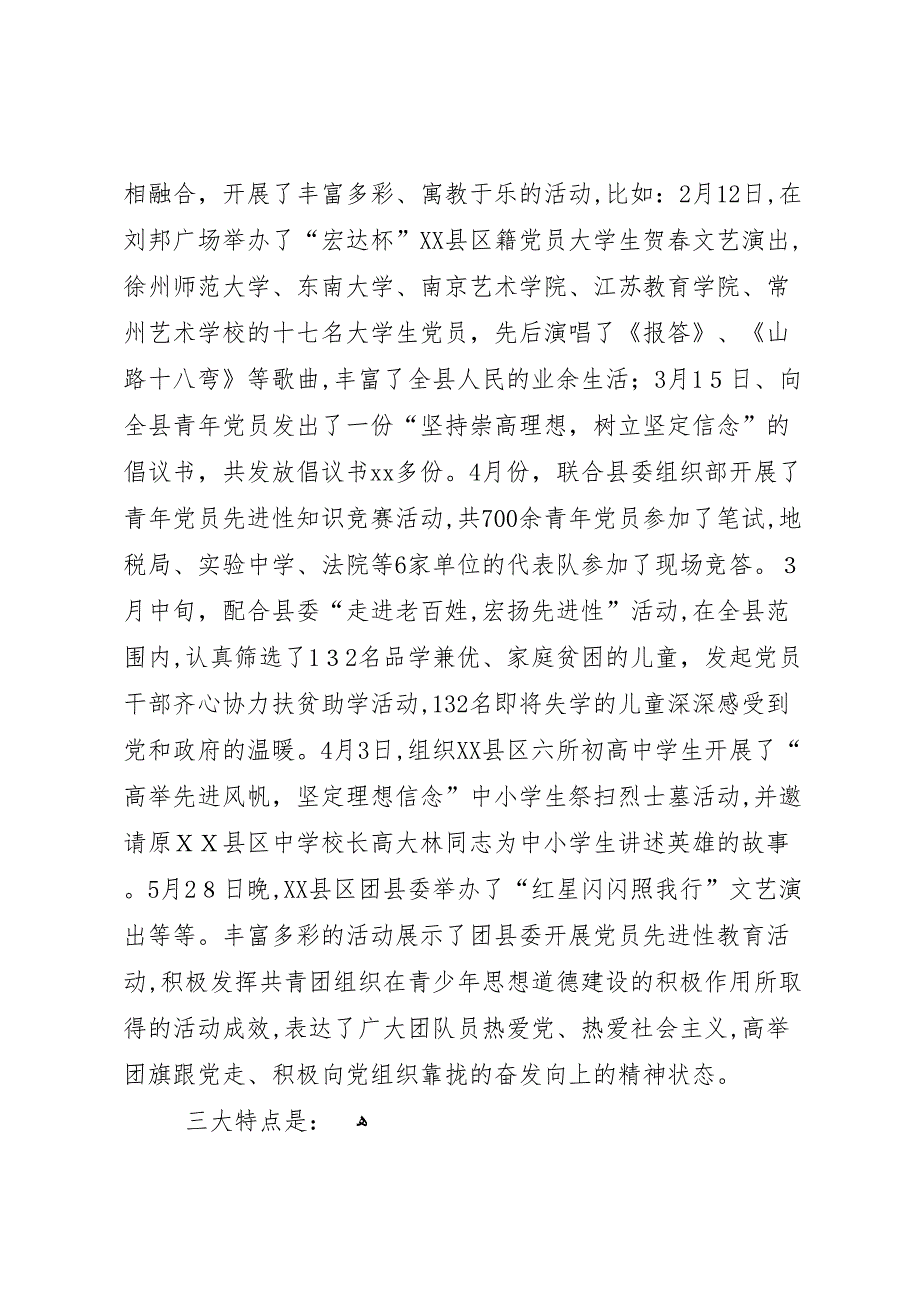 相融合，开展了丰富多彩、寓教于乐的活动,比如：2月12日,在
刘邦广场举办了“宏达杯”XX县区籍党员大学生贺春文艺演出,
徐州师范大学、东南大学、南京艺术学院、江苏教育学院、常
州艺术学校的十七名大学生党员，先后演唱了《报答》、《山
路十八弯》等歌曲,丰富了全县人民的业余生活；3月1５日、向
全县青年党员发出了一份“坚持崇高理想，树立坚定信念”的
倡议书，共发放倡议书xx多份。4月份，联合县委组织部开展了
青年党员先进性知识竞赛活动,共700余青年党员参加了笔试,地
税局、实验中学、法院等6家单位的代表队参加了现场竞答。３
月中旬，配合县委“走进老百姓,宏扬先进性”活动,在全县范
围内,认真筛选了1３2名品学兼优、家庭贫困的儿童，发起党员
干部齐心协力扶贫助学活动,132名即将失学的儿童深深感受到
党和政府的温暖。4月3日,组织XX县区六所初高中学生开展了“
高举先进风帆，坚定理想信念”中小学生祭扫烈士墓活动,并邀
请原ＸＸ县区中学校长高大林同志为中小学生讲述英雄的故事
。5月2８日晚,XX县区团县委举办了“红星闪闪照我行”文艺演
出等等。丰富多彩的活动展示了团县委开展党员先进性教育活
动,积极发挥共青团组织在青少年思想道德建设的积极作用所取
得的活动成效,表达了广大团队员热爱党、热爱社会主义,高举
团旗跟党走、积极向党组织靠拢的奋发向上的精神状态。
三大特点是： ﻫ